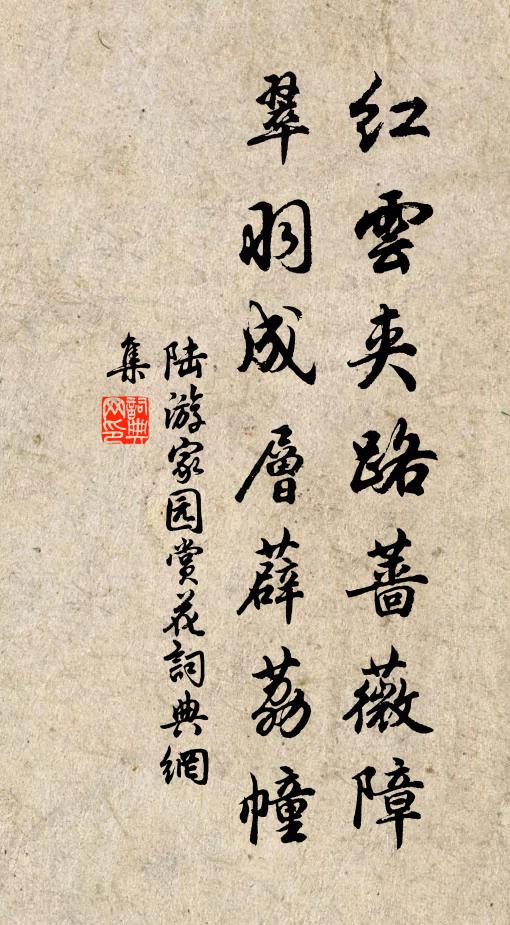 红雲夹路蔷薇障
翠羽成層薜荔幢
陆游家园赏花詞典網
集
詞典
网印